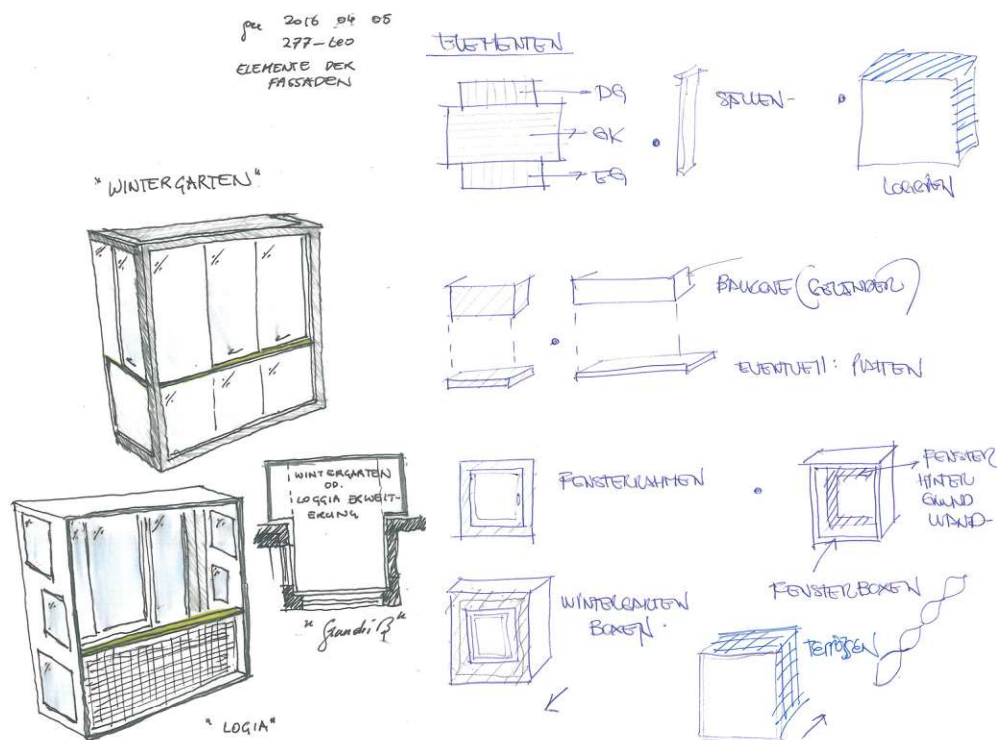 2016 04 05
277-LEO
ELEMENTE DER
FASSADEN
"WINTERGARTEN"
WINTERGARTEN
OD.
LOGGIA ERWEIT-
ERUNG
"Grundriß"
"LOGIA"
ELEMENTEN
DG
EG
LOGGIEN
BALKONE (GELENDER)
EVENTUELL: PLATTEN
FENSTERRAHMEN
FENSTER
HINTER
GRUND
WAND-
FENSTERBOXEN
WINTERGARTEN
BOXEN.